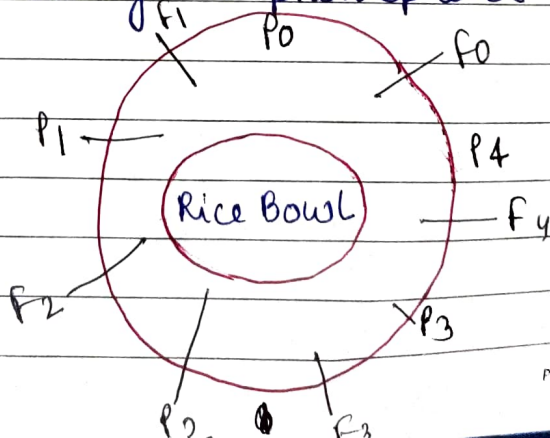 F1
P0
F0
P1
P4
Rice Bowl
F4
F2
P3
P2
F3